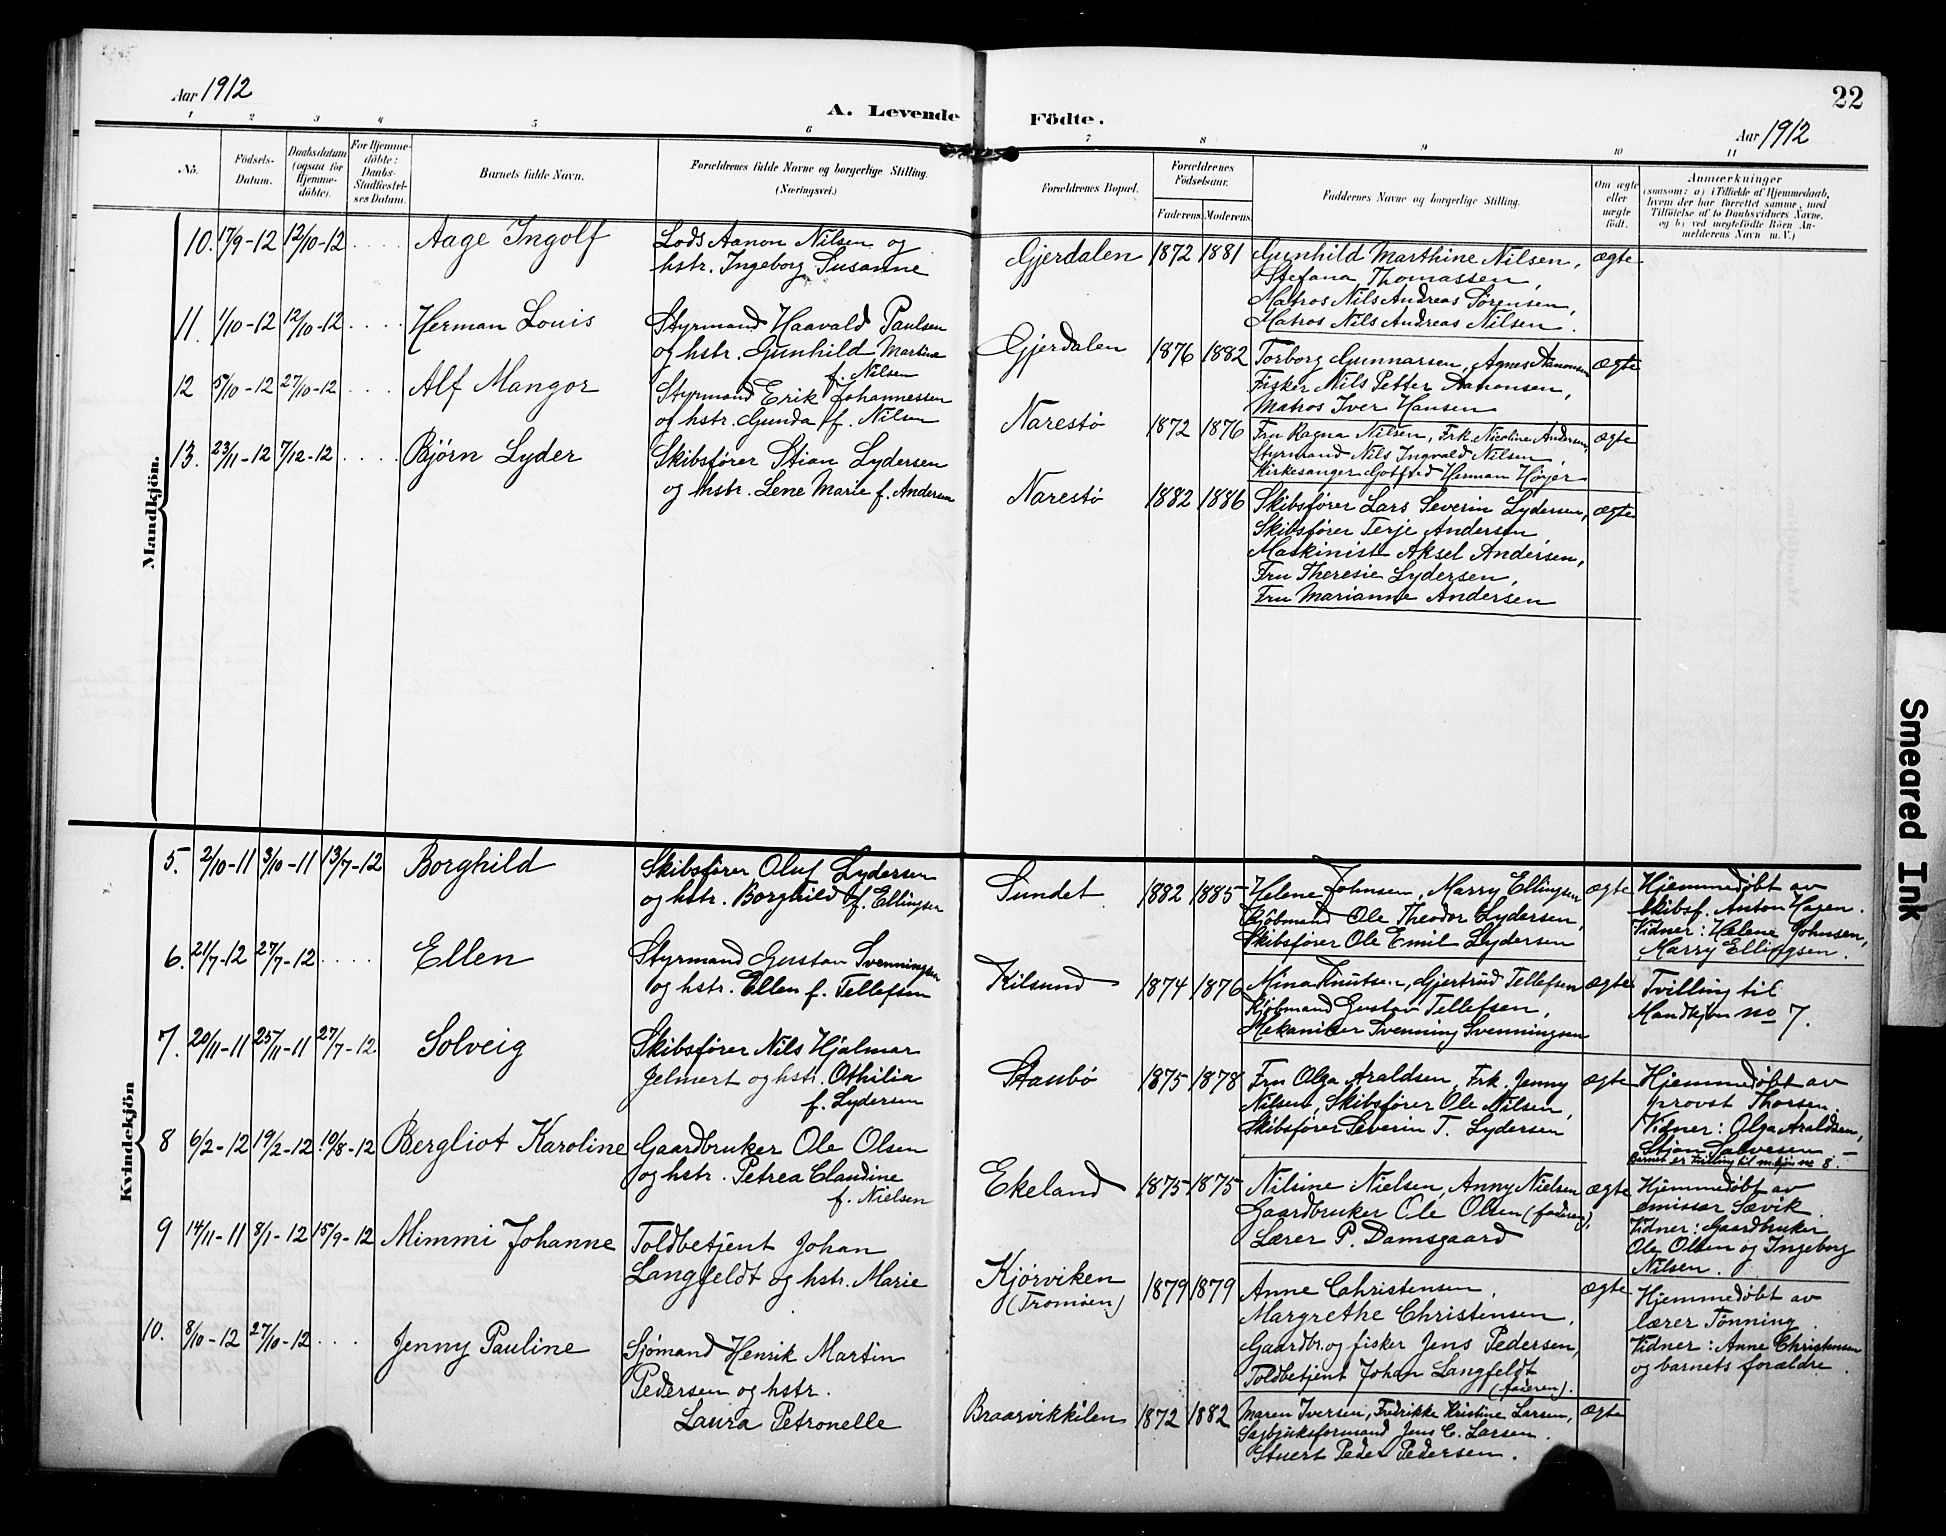 Aar 1912
A. Levende
Födte.
22
Aar 1912
1 2 3 4 5 6 7 8 9 10 11
No.
Födsels-
Datum.
Daabsdatum
(ogsaa for
Hjemme-
döbte).
For Hjemme-
döbte:
Daabs-
Stadfæstel-
ses Datum.
Barnets fulde Navn.
Forældrenes fulde Navne og borgerlige Stilling.
(Næringsvei.)
Forældrenes Bopæl.
Forældrenes
Födselsaar.
Faderens. Moderens.
Faddernes Navne og borgerlige Stilling.
Om ægte
eller
uægte
födt.
Anmærkninger
(saasom: a) i Tilfælde af Hjemmedaab,
hvem der har forrettet samme, med
Tilföielse af to Daabsvidners Navne,
og b) ved uægtefödte Börn An-
melderens Navn m.V.)
Mandkjön.
10. 17/9-12 12/10-12 .... Aage Ingolf
Lods Aanon Nilsen og
hstr. Ingeborg Susanne
Gjerdalen 1872 1881
Gunhild Marthine Nilsen,
Stefana Thomassen,
Matros Nils Andreas Sørensen,
Matros Nils Andreas Nilsen.
ægte
11. 1/10-12 12/10-12 .... Herman Louis
Styrmand Haavald Paulsen
og hstr. Gunhild Martine
f. Nilsen
Gjerdalen 1876 1882
Torborg Gunnarsen, Agnes Aanonsen
Fisker Nils Petter Aanonsen,
Matros Iver Hansen
ægte
12 5/10-12 27/10-12 .... Alf Mangor
Styrmand Erik Johannessen
og hstr. Gunda f. Nilsen
Narestø 1872 1876
Fru Ragna Nilsen, Frk. Nicoline Andersen,
Styrmand Nils Ingvald Nilsen
Kirkesanger Gotfred Herman Høyer
ægte
13. 23/11-12 7/12-12 .... Bjørn Lyder
Skibsfører Stian Lydersen
og hstr. Lene Marie f. Andersen
Narestø 1882 1886
Skibsfører Lars Severin Lydersen,
Skibsfører Terje Andersen
Maskinist Aksel Andersen,
Fru Theresie Lydersen,
Fru Marianne Andersen
ægte
Kvindekjön
5. 2/10-11 3/10-11 13/7-12 Borghild
Skibsfører Oluf Lydersen
og hstr. Borghild f. Ellingsen
Sundet 1882 1885
Helene Johnsen, Marry Ellingsen
Kjøbmand Ole Theodor Lydersen,
Skibsfører Ole Emil Lydersen
ægte
Hjemmedøbt av
skibsf. Anton Hagen.
Vidner: Helene Johnsen,
Marry Ellingsen.
6. 21/7-12 27/7-12 .... Ellen
Styrmand Gustav Svenningsen
og hstr. Ellen f. Tellefsen
Kilsund 1874 1876
Mina Knutsen, Gjertrud Tellefsen
Kjøbmand Gustav Tellefsen,
Mekaniker Svenning Svenningsen
ægte
Tvilling til
Mandkjøn no 7.
7. 20/11-11 25/11-11 27/7-12 Solveig
Skibsfører Nils Hjalmar
Jelmert og hstr. Othilia
f. Lydersen
Staubø 1875 1878
Fru Olga Araldsen, Frk. Jenny
Nilsen, Skibsfører Ole Nilsen,
Skibsfører Severin T. Lydersen
ægte
Hjemmedøbt av
provst Thorsen.
Vidner: Olga Araldsen,
Stjan Salvesen –
Barnet er tvilling til m.kjøn no 8.
8 6/2-12 19/2-12 10/8-12 Bergliot Karoline
Gaardbruker Ole Olsen
og hstr. Petrea Claudine
f. Nielsen
Ekeland 1875 1875
Nilsine Nielsen, Anny Nielsen
Gaardbruker Ole Olsen (faderen),
Lærer P. Damsgaard
ægte
Hjemmedøbt av
emissær Sævik.
Vidner: Gaardbruker
Ole Olsen og Ingeborg
Nilsen.
9 14/11-11 8/1-12 15/9-12 Mimmi Johanne
Toldbetjent Johan
Langfeldt og hstr. Marie
Kjørviken
(Tromøen) 1879 1879
Anne Christensen,
Margrethe Christensen,
Gaardbr. og fisker Jens Pedersen,
Toldbetjent Johan Langfeldt
(faderen).
ægte
Hjemmedøbt av
lærer Tønning.
Vidner: Anne Christensen
og barnets forældre.
10. 8/10-12 27/10-12 .... Jenny Pauline
Sjømand Henrik Martin
Pedersen og hstr.
Laura Petronelle
Braarvikkilen 1872 1882
Maren Iversen, Fredrikke Kristine Larsen,
Sagbruksformand Jens C. Larsen.
Stuert Peder Pedersen.
ægte
Smeared Ink